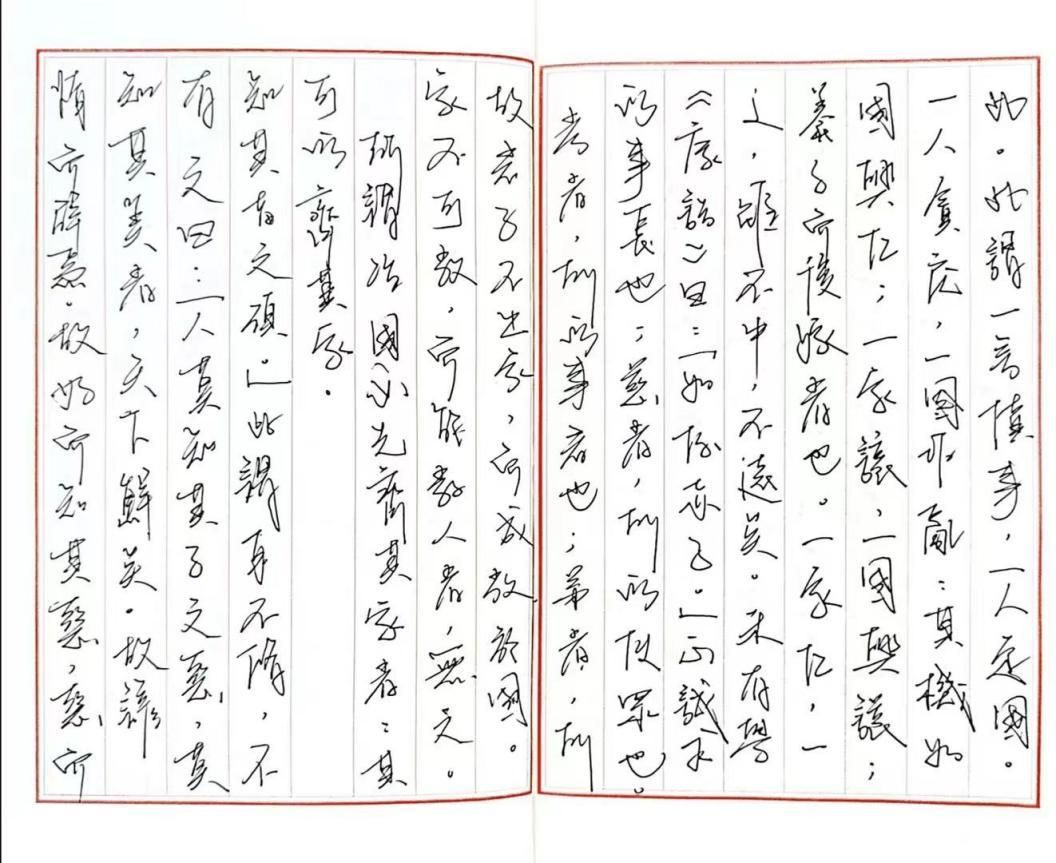 惰而辟焉。故好而知其惡,惡而
知其美者,天下鮮矣。故諺
有之曰:「人莫知其子之惡,莫
知其苗之碩。」此謂身不脩,不
可以齊其家。
所謂治國必先齊其家者:其
家不可教,而能教人者,無之。
故君子不出家,而成教於國。
孝者,所以事君也;弟者,所
以事長也;慈者,所以使眾也。
《康誥》曰:「如保赤子。」心誠求
之,雖不中,不遠矣。未有學
養子而後嫁者也。一家仁,一
國興仁;一家讓,一國興讓;
一人貪戾,一國作亂:其機如
此。此謂一言僨事,一人定國。